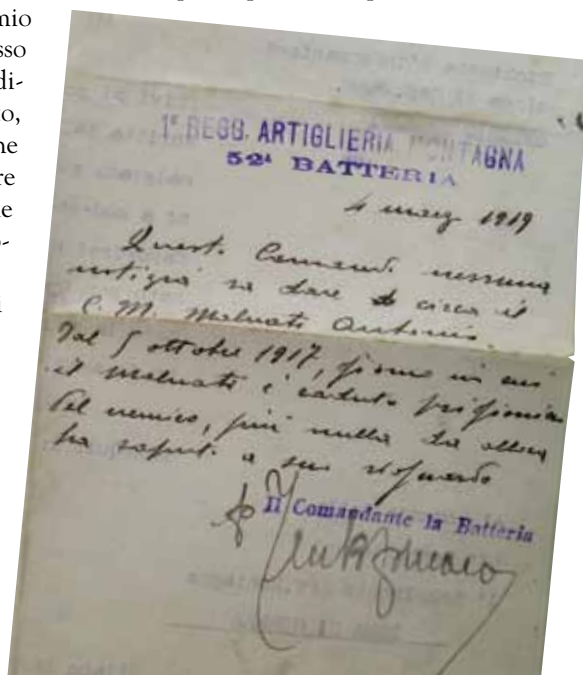 nio
sso
di-
to,
ne
re
e
-
i
1° REGG. ARTIGLIERIA MONTAGNA
52ª BATTERIA
4 marzo 1919
Questo Comando nessuna
notizia sa dare circa il
C. M. Malnati Antonio.
Dal 5 ottobre 1917, giorno in cui
il Malnati è caduto prigioniero
del nemico, più nulla da allora
ha saputo a suo riguardo
Il Comandante la Batteria